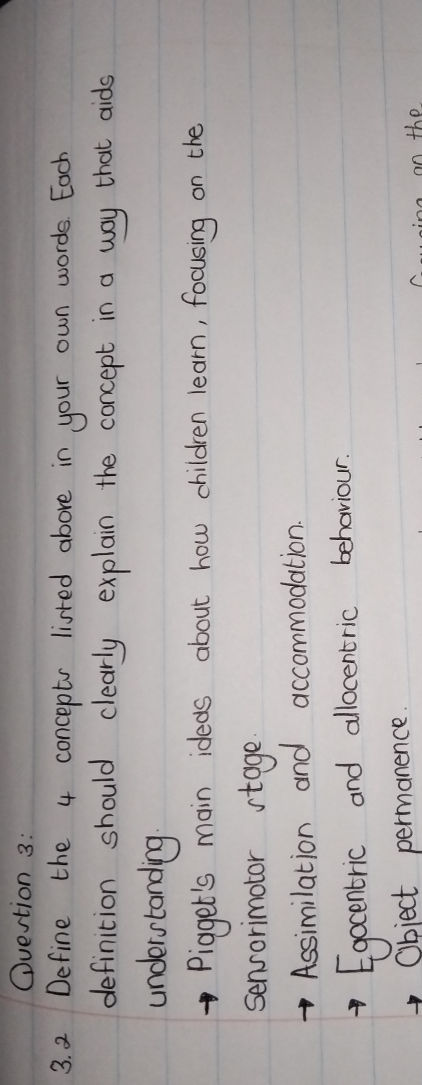 Question 3:
3.2 Define the 4 concepts listed above in your own words. Each
definition should clearly explain the concept in a way that aids
understanding.
→ Piaget's main ideas about how children learn, focusing on the
Sensorimotor stage.
→ Assimilation and accommodation.
→ Egocentric and allocentric behaviour.
→ Object permanence.
on the